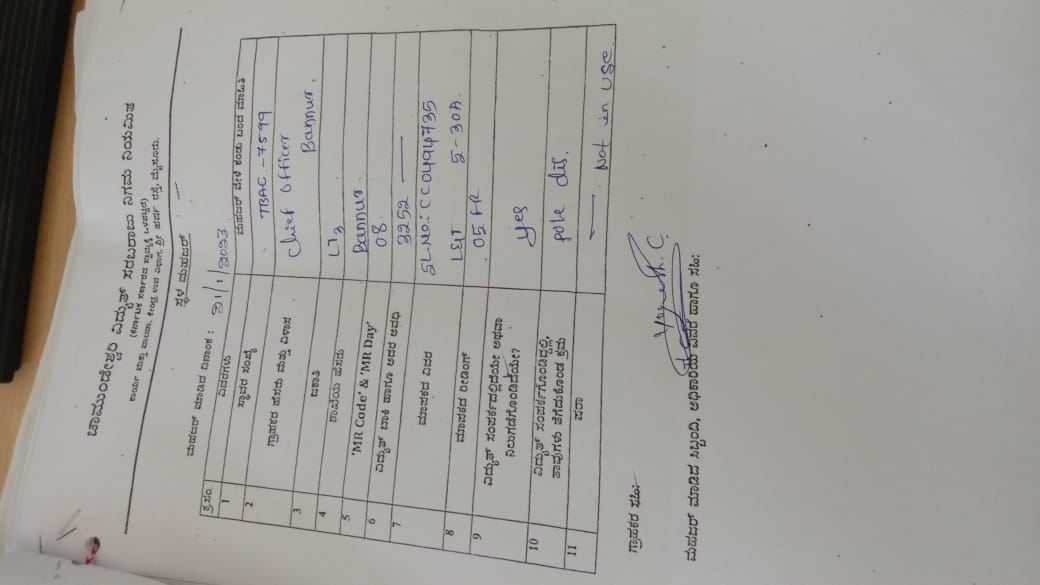 ಚಾಮುಂಡೇಶ್ವರಿ ವಿದ್ಯುತ್ ಸರಬರಾಜು ನಿಗಮ ನಿಯಮಿತ
(ಕರ್ನಾಟಕ ಸರ್ಕಾರದ ಸ್ವಾಮ್ಯಕ್ಕೆ ಒಳಪಟ್ಟಿದೆ)
ಕಾರ್ಯ ಮತ್ತು ಪಾಲನಾ, ಕೇಂದ್ರ ಉಪ ವಿಭಾಗ,
ಸ್ಥಳ ಮಹಜರ್
ಮಹಜರ್ ಮಾಡಿದ ದಿನಾಂಕ :
ಕ್ರ.ಸಂ. ವಿವರಗಳು ಮಹಜರ್ ವೇಳೆ ಕಂಡು ಬಂದ ಮಾಹಿತಿ
1 ಸ್ಥಾವರ ಸಂಖ್ಯೆ TBAC-7599
2 ಗ್ರಾಹಕರ ಹೆಸರು ಮತ್ತು ವಿಳಾಸ Chief Officer
Bannur.
3 ಜಕಾತಿ LT3
4 ಶಾಖೆಯ ಹೆಸರು Bannur
5 'MR Code' & 'MR Day' 08
6 ವಿದ್ಯುತ್ ಬಾಕಿ ಹಾಗೂ ಅದರ ಅವಧಿ 3252
7 ಮಾಪಕದ ವಿವರ SL.No: CC0494735
L&T 5-30A.
8 ಮಾಪಕದ ರೀಡಿಂಗ್ 05 FR
9 ವಿದ್ಯುತ್ ಸಂಪರ್ಕದಲ್ಲಿದೆಯೇ ಅಥವಾ
ನಿಲುಗಡೆಗೊಂಡಿದೆಯೇ? yes
10 ವಿದ್ಯುತ್ ಸಂಪರ್ಕಗೊಂಡಿದ್ದಲ್ಲಿ,
ತಾವುಗಳು ತೆಗೆದುಕೊಂಡ ಕ್ರಮ pole dis.
11 ಷರಾ Not in use.
ಗ್ರಾಹಕರ ಸಹಿ:
ಮಹಜರ್ ಮಾಡಿದ ಸಿಬ್ಬಂದಿ, ಅಧಿಕಾರಿಯ ವಿವರ ಹಾಗೂ ಸಹಿ: